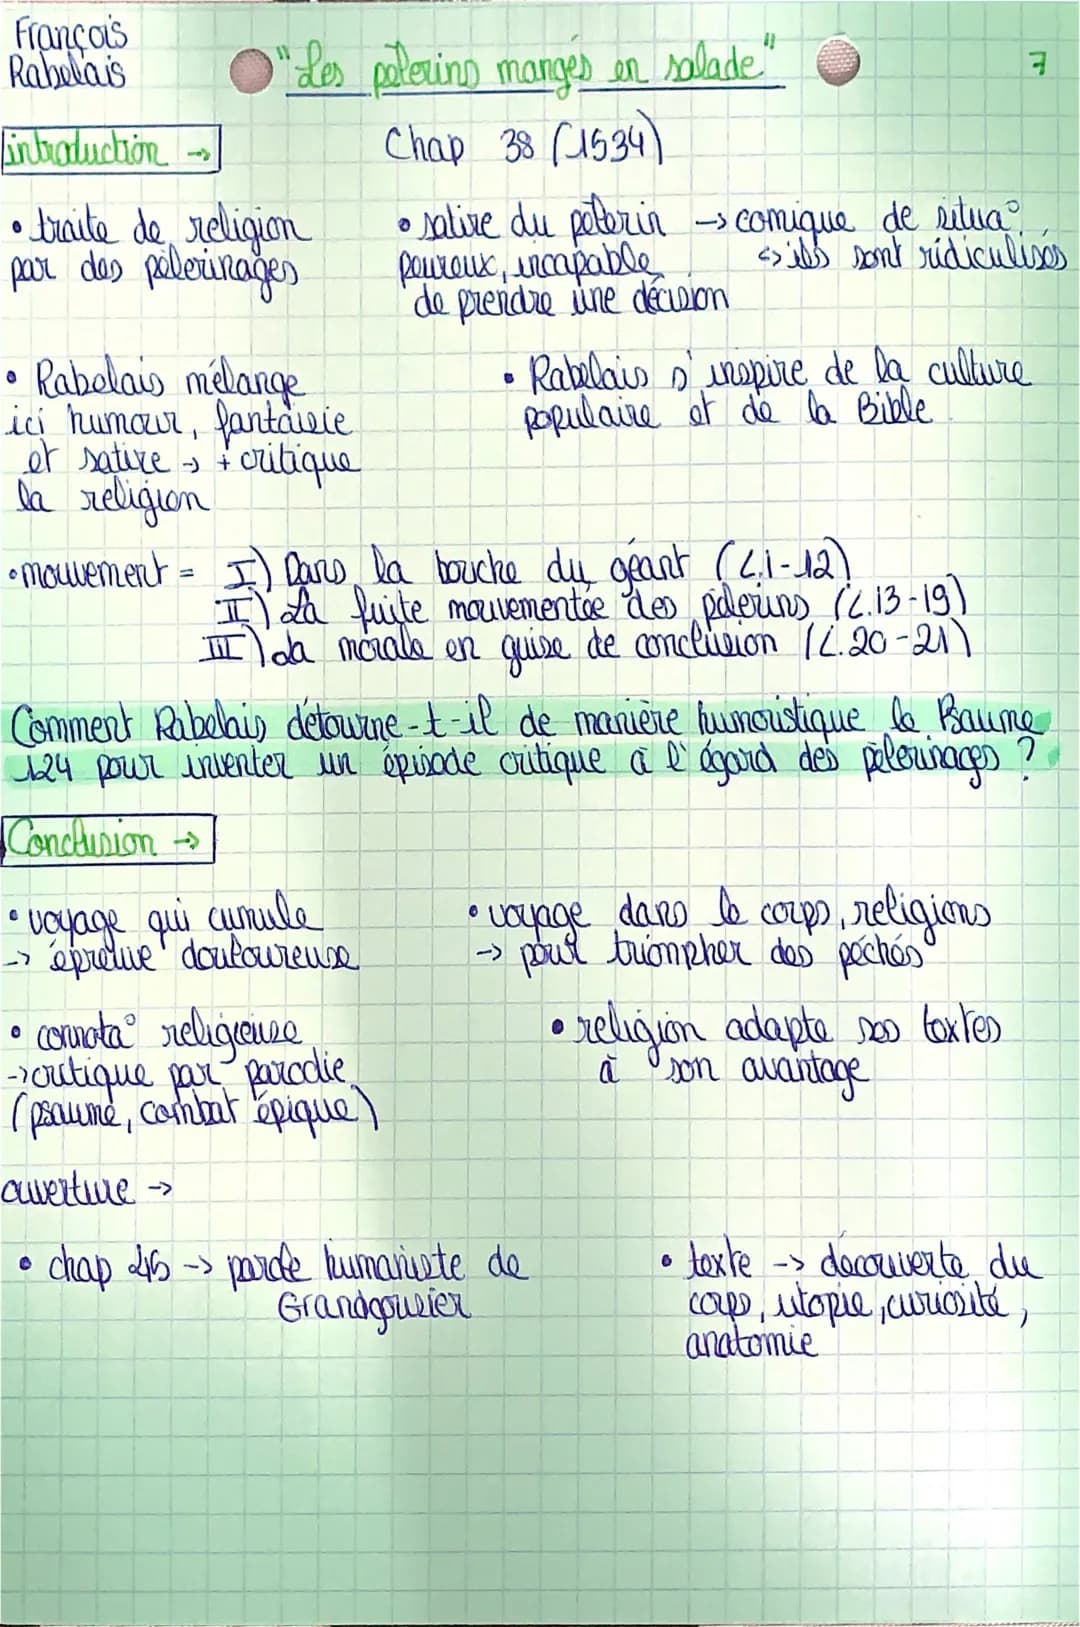 François
Rabelais
"Les pelerins mangés en salade"
7
introduction →
Chap 38 (1534)
• traite de religion
par des pèlerinages
• satire du pélerin → comique de situa°
peureux, incapable
de prendre une décision
↳ ils sont ridiculisés
• Rabelais mélange
ici humour, fantaisie
et satire → + critique
la religion
• Rabelais s'inspire de la culture
populaire et de la Bible
• mouvement = I) Dans la bouche du géant (L.1-12)
II) La fuite mouvementée des pélerins (L.13-19)
III) La morale en guise de conclusion (L.20-21)
Comment Rabelais détourne-t-il de manière humoristique le Psaume
124 pour inventer un épisode critique à l'égard des pèlerinages ?
Conclusion →
• voyage qui cumule
→ épreuve douloureuse
• voyage dans le corps, religions
→ pour triompher des péchés
• connota° religieuse
→ critique par parodie
(psaume, combat épique)
• religion adapte ses textes
à son avantage
ouverture →
• chap 45 → parole humaniste de
Grandgousier
• texte → découverte du
corps, utopie, curiosité,
anatomie